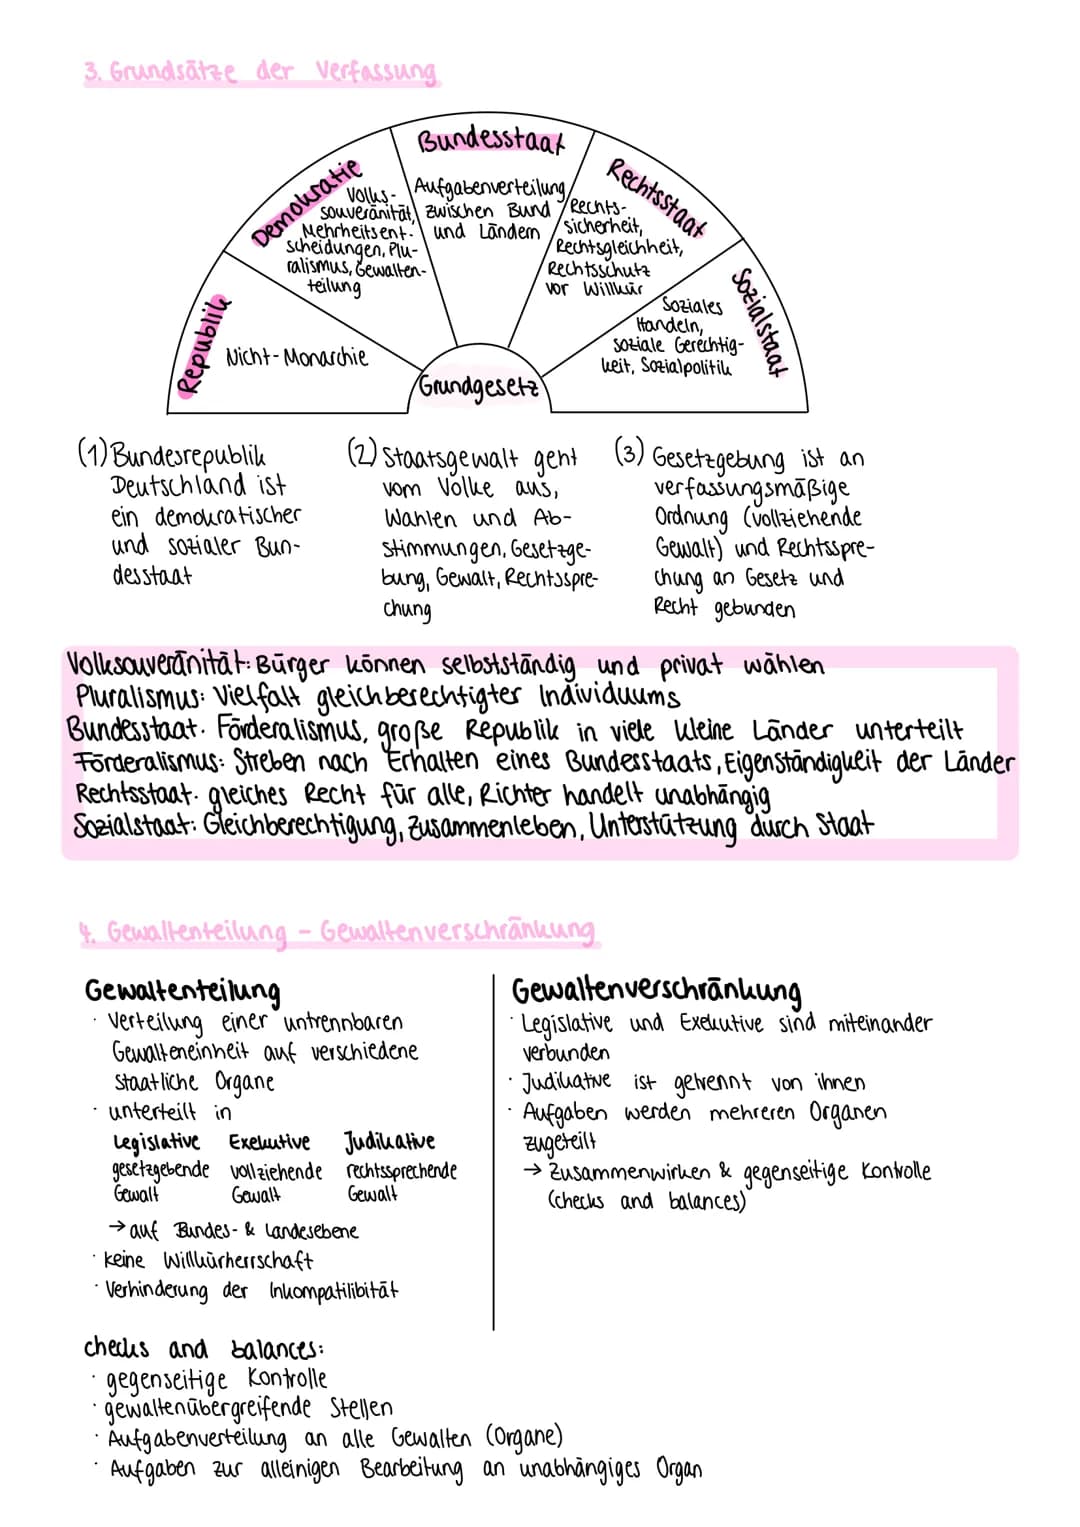 3. Grundsätze der Verfassung
Bundesstaat
Aufgabenverteilung
zwischen Bund
und Ländern
Demokratie
Volks-
souveränität,
Mehrheitsent-
scheidungen, Plu-
ralismus, Gewalten-
teilung
Rechtsstaat
Rechts-
sicherheit,
Rechtsgleichheit,
Rechtsschutz
vor Willkür
Republik
Nicht-Monarchie
Sozialstaat
Soziales
Handeln,
soziale Gerechtig-
keit, Sozialpolitik
Grundgesetz
(1) Bundesrepublik
Deutschland ist
ein demokratischer
und sozialer Bun-
desstaat
(2) Staatsgewalt geht
vom Volke aus,
Wahlen und Ab-
stimmungen, Gesetzge-
bung, Gewalt, Rechtsspre-
chung
(3) Gesetzgebung ist an
verfassungsmäßige
Ordnung (vollziehende
Gewalt) und Rechtsspre-
chung an Gesetz und
Recht gebunden
Volksouveränität: Bürger können selbstständig und privat wählen
Pluralismus: Vielfalt gleichberechtigter Individuums
Bundesstaat: Förderalismus, große Republik in viele kleine Länder unterteilt
Förderalismus: Streben nach Erhalten eines Bundesstaats, Eigenständigkeit der Länder
Rechtsstaat: gleiches Recht für alle, Richter handelt unabhängig
Sozialstaat: Gleichberechtigung, Zusammenleben, Unterstützung durch Staat
4. Gewaltenteilung - Gewaltenverschränkung
Gewaltenteilung
· Verteilung einer untrennbaren
Gewalteneinheit auf verschiedene
staatliche Organe
· unterteilt in
Legislative Exekutive Judikative
gesetzgebende vollziehende rechtssprechende
Gewalt Gewalt Gewalt
→ auf Bundes- & Landesebene
· keine Willkürherrschaft
· Verhinderung der Inkompatilibität
Gewaltenverschränkung
· Legislative und Exekutive sind miteinander
verbunden
· Judikative ist getrennt von ihnen
· Aufgaben werden mehreren Organen
zugeteilt
→ Zusammenwirken & gegenseitige Kontrolle
(checks and balances)
checks and balances:
· gegenseitige Kontrolle
· gewaltenübergreifende Stellen
· Aufgabenverteilung an alle Gewalten (Organe)
· Aufgaben zur alleinigen Bearbeitung an unabhängiges Organ